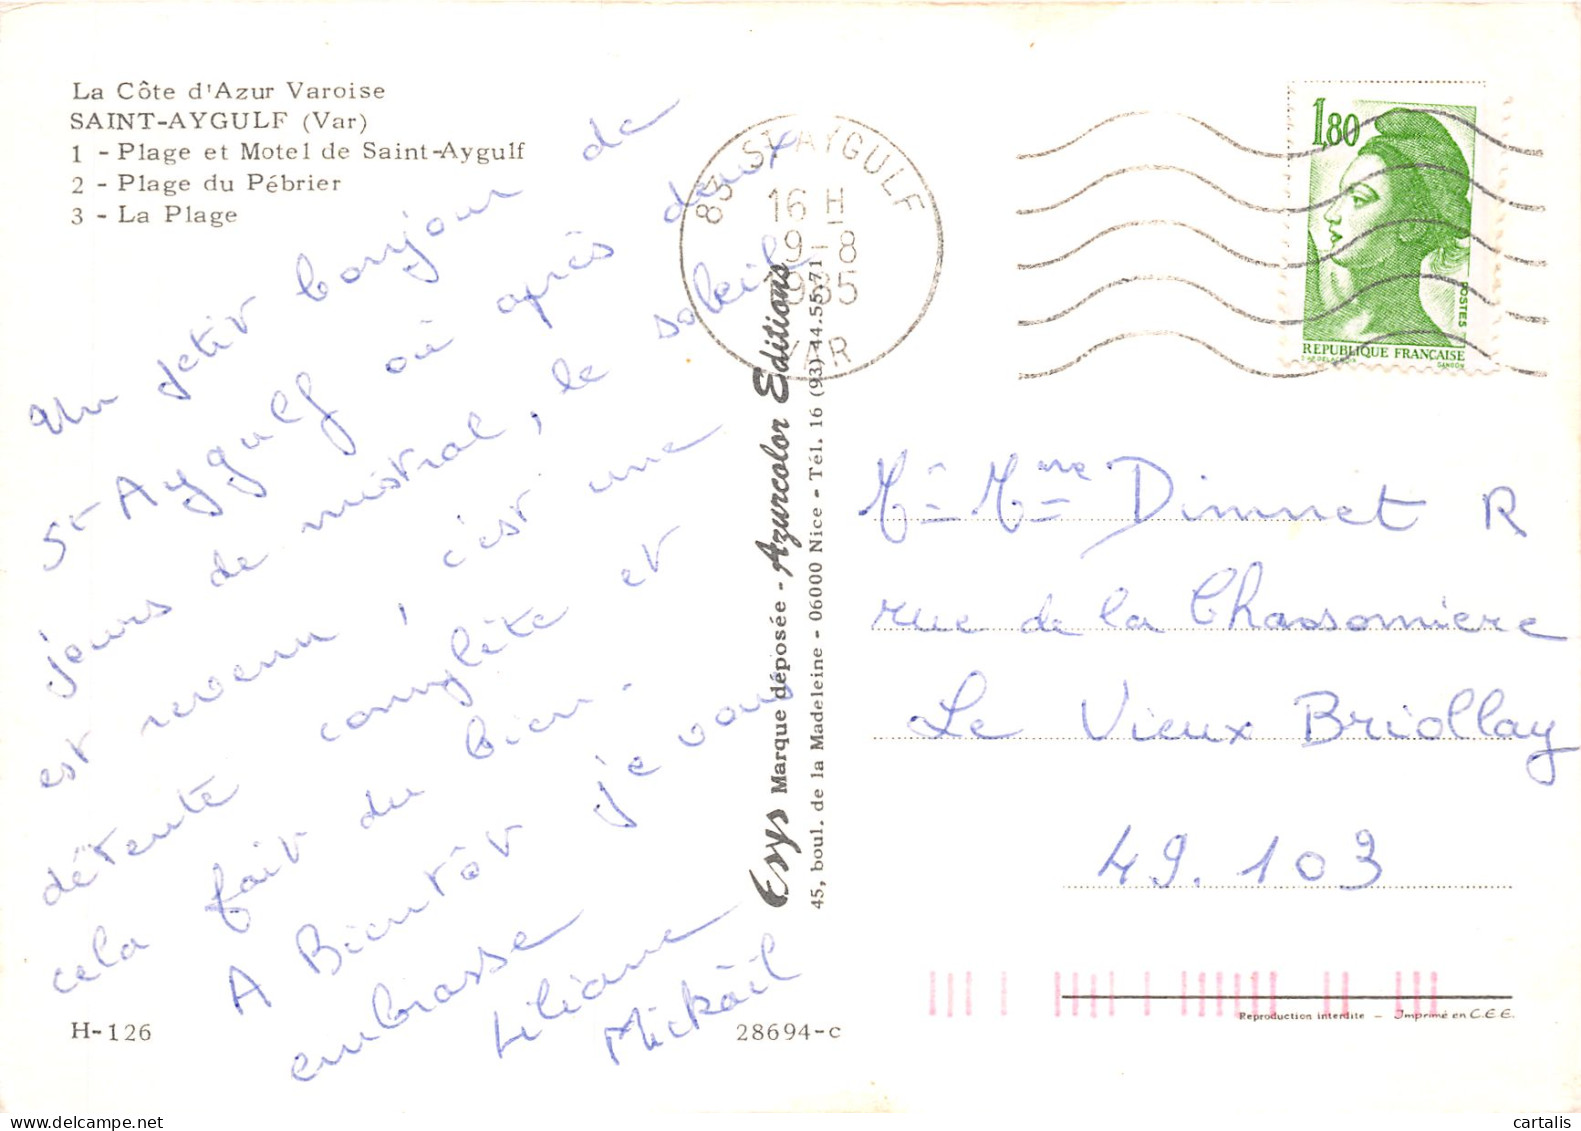 La Côte d'Azur Varoise
SAINT-AYGULF (Var)
1 - Plage et Motel de Saint-Aygulf
2 - Plage du Pébrier
3 - La Plage
Un petit bonjour de
St Aygulf où après deux
jours de mistral, le soleil
est revenu, c'est une
détente complète et
cela fait du bien.
A Bientôt je vous
embrasse
Liliane
Mickaël
H-126
28694-c
83 ST AYGULF
16 H
9-8
1985
VAR
Esys Marque déposée - Azurcolor Editions
45, boul. de la Madeleine - 06000 Nice - Tél. 16 (93) 44.55.71
1,80
POSTES
REPUBLIQUE FRANÇAISE
GANDON
M. Mme Dimnet R
rue de la Chassonniere
Le Vieux Briollay
49.103
Reproduction interdite - Imprimé en C.E.E.
cartalis